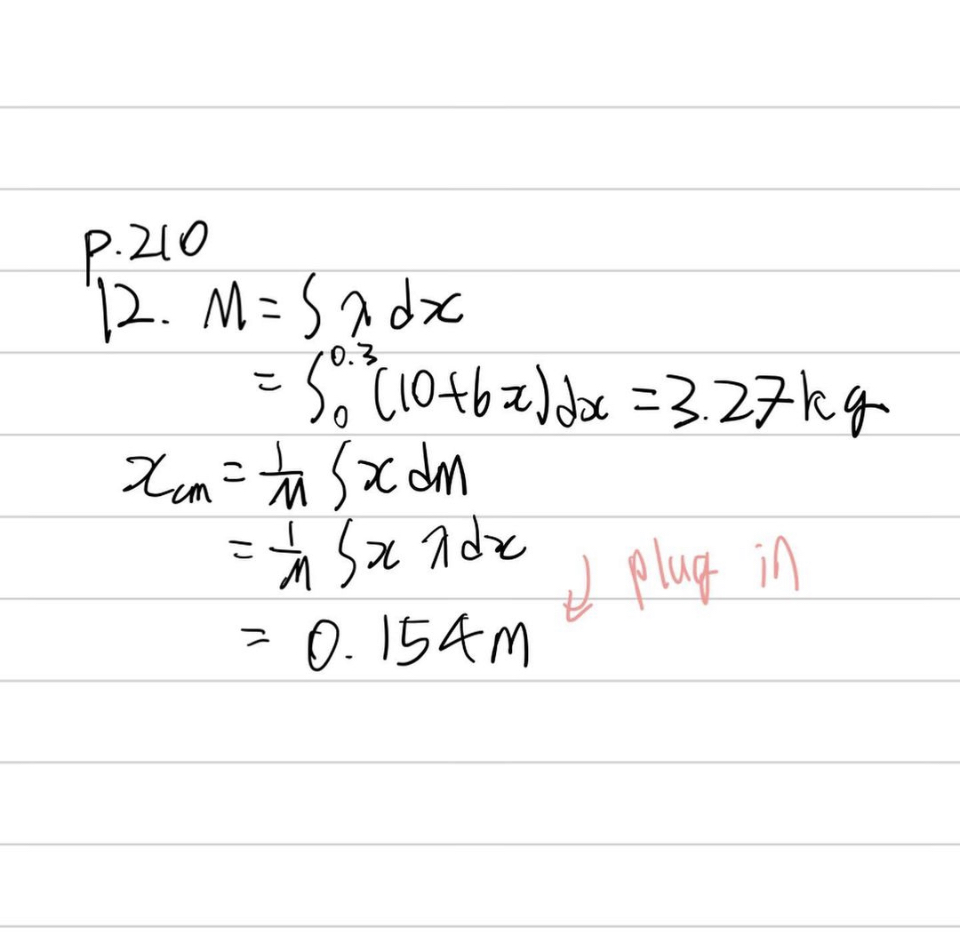 p.210
12. M = ∫ λ dx
= ∫₀^0.3 (10+6x)dx = 3.27kg
x_cm = 1/M ∫x dM
= 1/M ∫x λdx
↙ plug in
= 0.154m